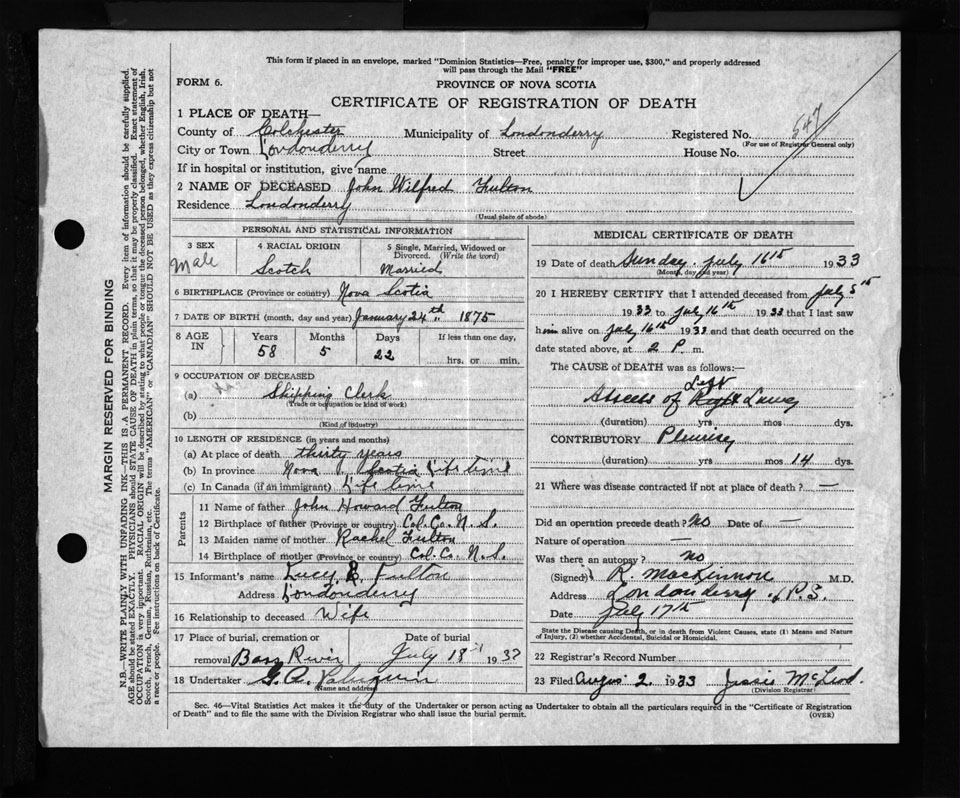 This form if placed in an envelope, marked "Dominion Statistics—Free, penalty for improper use, $300," and properly addressed
will pass through the Mail "FREE"
FORM 6.
PROVINCE OF NOVA SCOTIA
CERTIFICATE OF REGISTRATION OF DEATH
1 PLACE OF DEATH—
County of Colchester Municipality of Londonderry Registered No. 547
(For use of Registrar General only)
City or Town Londonderry Street House No.
If in hospital or institution, give name
2 NAME OF DECEASED John Wilfred Fulton
Residence Londonderry
(Usual place of abode)
PERSONAL AND STATISTICAL INFORMATION
3 SEX Male
4 RACIAL ORIGIN Scotch
5 Single, Married, Widowed or Divorced. (Write the word) Married
6 BIRTHPLACE (Province or country) Nova Scotia
7 DATE OF BIRTH (month, day and year) January 24th 1875
8 AGE IN Years 58 Months 5 Days 22 If less than one day, hrs. or min.
9 OCCUPATION OF DECEASED
(a) Shipping Clerk
(Trade or occupation or kind of work)
(b)
(Kind of industry)
10 LENGTH OF RESIDENCE (in years and months)
(a) At place of death thirty years
(b) In province Nova Scotia Life time
(c) In Canada (if an immigrant) Life time
Parents
11 Name of father John Howard Fulton
12 Birthplace of father (Province or country) Col. Co. N. S.
13 Maiden name of mother Rachel Fulton
14 Birthplace of mother (Province or country) Col. Co. N. S.
15 Informant's name Lucy B. Fulton
Address Londonderry
16 Relationship to deceased Wife
17 Place of burial, cremation or removal Bass River
Date of burial July 18 1933
18 Undertaker G. A.
(Name and address)
MEDICAL CERTIFICATE OF DEATH
19 Date of death Sunday July 16th 1933
(Month, day and year)
20 I HEREBY CERTIFY that I attended deceased from July 5th
1933 to July 16th 1933 that I last saw
him alive on July 16th 1933 and that death occurred on the
date stated above, at 2 P. m.
The CAUSE OF DEATH was as follows:—
Left
Abscess of Right Lung
(duration) yrs mos dys.
CONTRIBUTORY Pleurisy
(duration) yrs mos 14 dys.
21 Where was disease contracted if not at place of death? —
Did an operation precede death? No Date of —
Nature of operation —
Was there an autopsy? no
(Signed) R. MacKinnon M.D.
Address Londonderry N.S.
Date July 17th
State the Disease causing Death, or in death from Violent Causes, state (1) Means and Nature
of Injury, (2) whether Accidental, Suicidal or Homicidal.
22 Registrar's Record Number
23 Filed 2, 1933 Jessie McLeod
(Division Registrar)
Sec. 46—Vital Statistics Act makes it the duty of the Undertaker or person acting as Undertaker to obtain all the particulars required in the "Certificate of Registration
of Death" and to file the same with the Division Registrar who shall issue the burial permit.
(OVER)
MARGIN RESERVED FOR BINDING
N.B.—WRITE PLAINLY WITH UNFADING INK—THIS IS A PERMANENT RECORD. Every item of information should be carefully supplied.
AGE should be stated EXACTLY. PHYSICIANS should STATE CAUSE OF DEATH in plain terms, so that it may be properly classified. Exact statement of
OCCUPATION is very important. RACIAL ORIGIN will be described by stating to what people or tongue the deceased person belonged, whether English, Irish,
Scotch, French, German, Russian, Ruthenian, etc. The terms "AMERICAN" or "CANADIAN" SHOULD NOT BE USED as they express citizenship but not
a race or people. See instructions on back of Certificate.